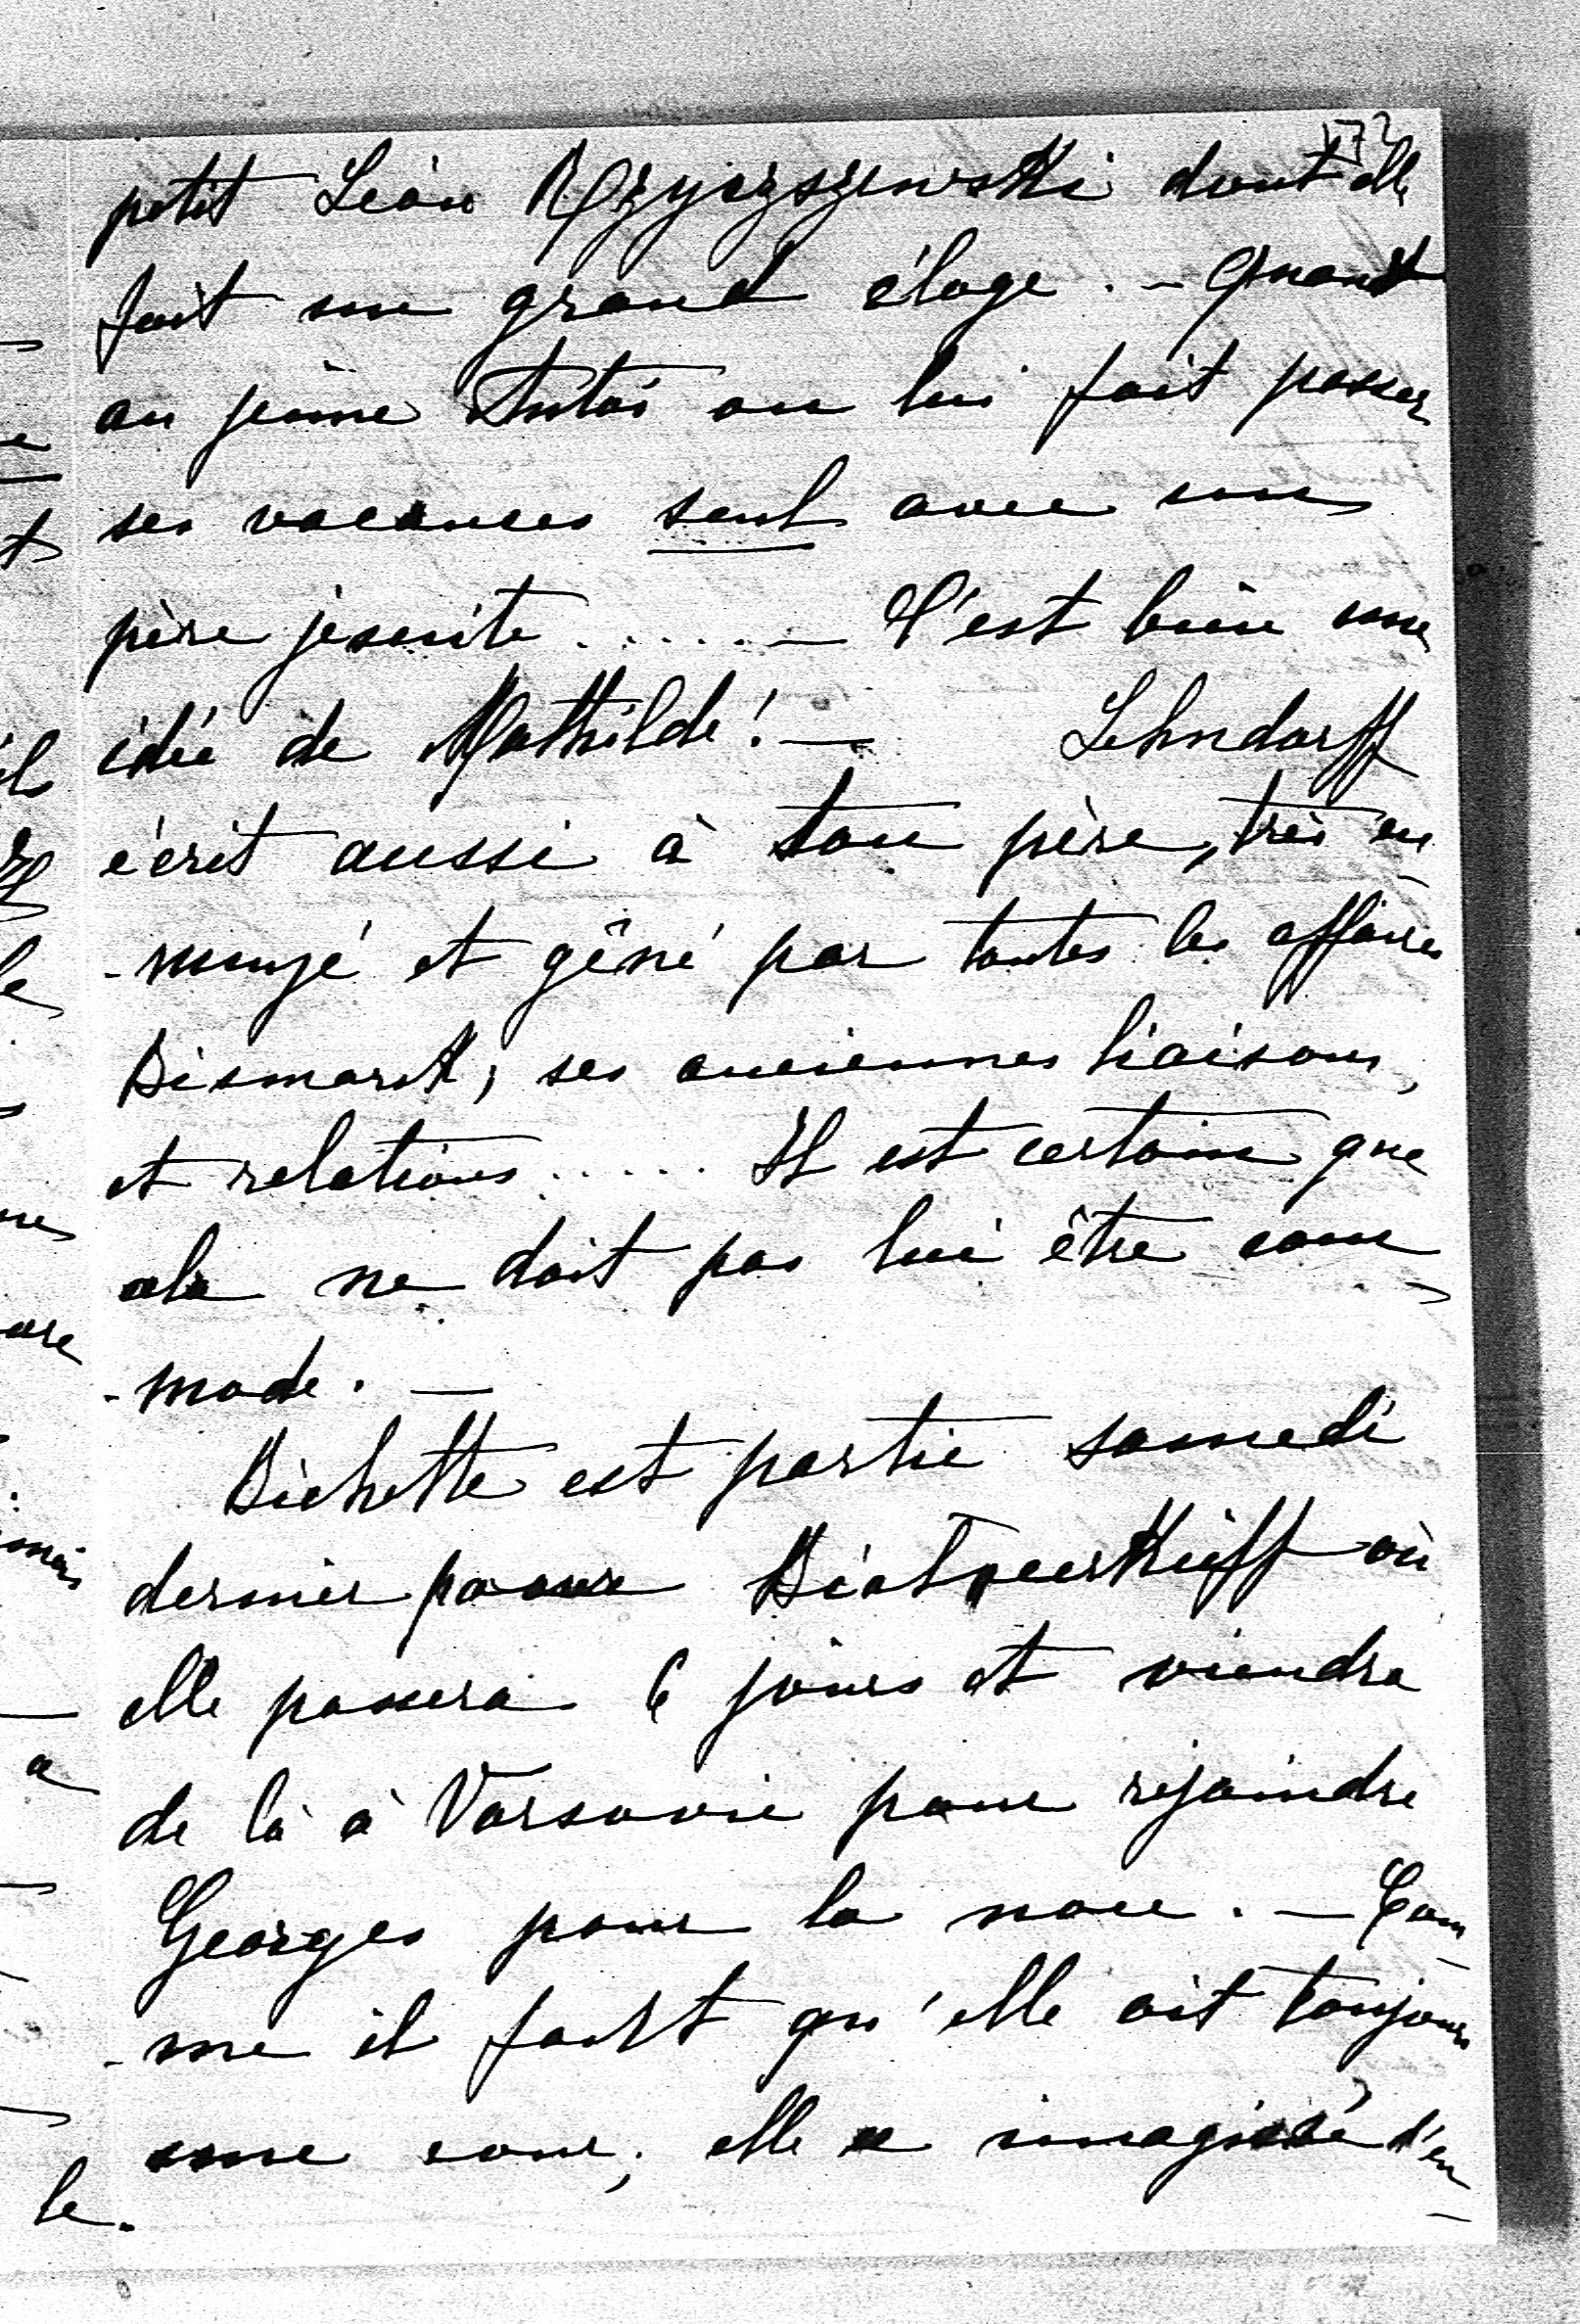 petit Léon Rzyszczewski dont elle
fait un grand éloge. - Quant
au jeune Antoś on lui fait passer
ses vacances seul avec un
père jésuite ...... — C'est bien une
idée de Mathilde! — Lehndorff
écrit aussi à ton père, très en
-nuyé et gêné par toutes les affaires
Bismarck, ses anciennes liaisons,
et relations ..... Il est certain que
cela ne doit pas lui être com
-mode. —
Bichette est partie samedi
dernier pour où
elle passera 6 jours et viendra
de là à Varsovie pour rejoindre
Georges pour la noce. — Com
-me il faut qu'elle ait toujours
une cour, elle a imaginé d'en